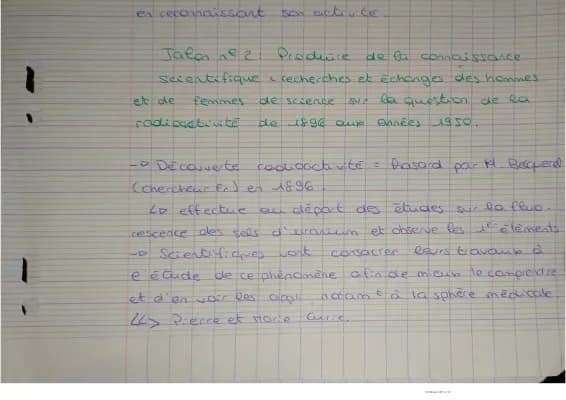 en reconnaissant son activité.
Jalon n° 2 : Produire de la connaissance
scientifique : recherches et échanges des hommes
et de femmes de science sur la question de la
radioactivité de 1896 aux années 1950.
→ Découverte radioactivité = hasard par H Becquerel
(chercheur Fr) en 1896.
↳ effectue au départ des études sur la fluo-
rescence des sels d'uranium et observe les 1er éléments
→ Scientifiques vont consacrer leurs travaux à
l'étude de ce phénomène afin de mieux le comprendre
et d'en voir les appli notamt à la sphère médicale
↳> Pierre et Marie Curie.